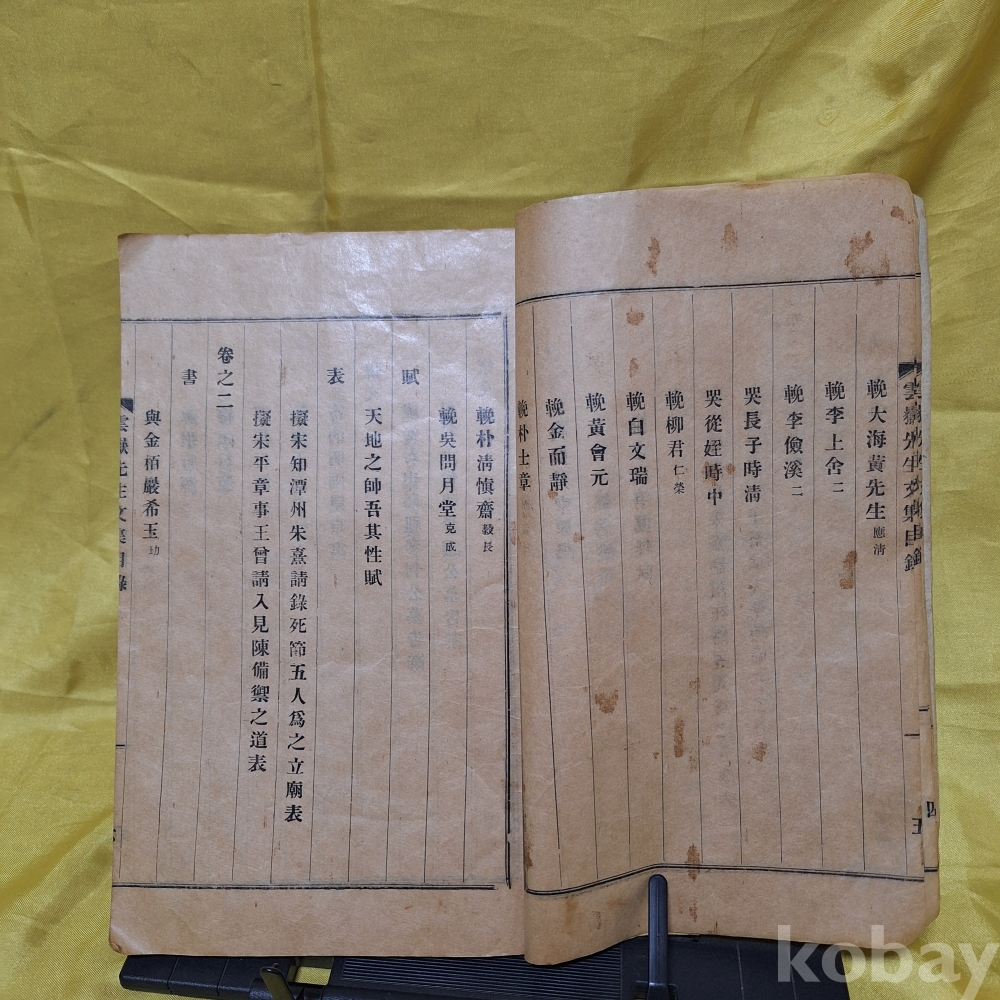 輓大海黃先生 應淸
輓李上舍 二
輓李儉溪 二
哭長子時淸
哭從姪時中
輓柳君 仁榮
輓白文瑞
輓黃會元
輓金而靜
輓朴士章
輓朴淸愼齋 毅長
輓吳問月堂 克成
賦
天地之帥吾其性賦
表
擬宋知潭州朱熹請錄死節五人爲之立廟表
擬宋平章事王曾請入見陳備禦之道表
卷之二
書
與金栢巖希玉 玏
雲嶽先生文集目錄
五
四
kobay